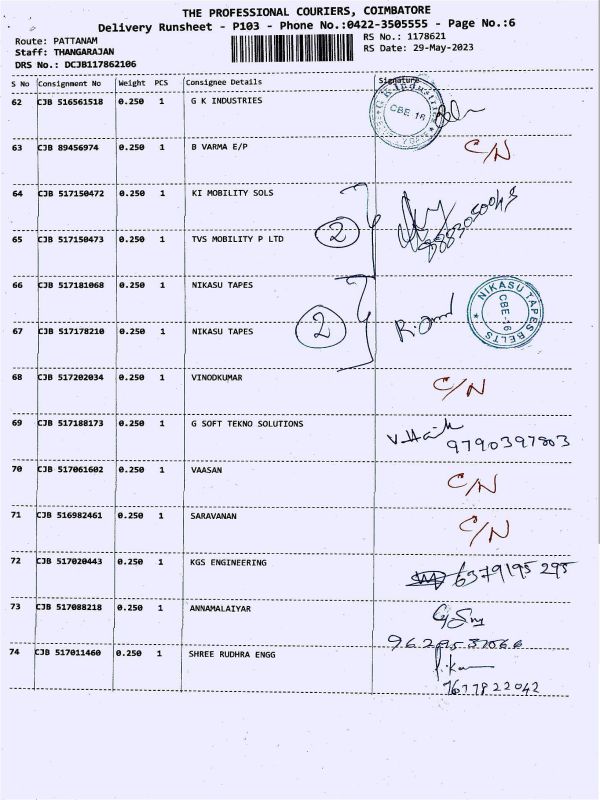 THE PROFESSIONAL COURIERS, COIMBATORE
Delivery Runsheet - P103 - Phone No.:0422-3505555 - Page No.:6
Route: PATTANAM
RS No.: 1178621
Staff: THANGARAJAN
RS Date: 29-May-2023
DRS No.: DCJB117862106
S No Consignment No Weight PCS Consignee Details Signature
62 CJB 516561518 0.250 1 G K INDUSTRIES CBE 16
63 CJB 89456974 0.250 1 B VARMA E/P C/N
64 CJB 517150472 0.250 1 KI MOBILITY SOLS
65 CJB 517150473 0.250 1 TVS MOBILITY P LTD 2
66 CJB 517181068 0.250 1 NIKASU TAPES
67 CJB 517178210 0.250 1 NIKASU TAPES 2 NIKASU TAPES BELTS CBE-16
68 CJB 517202034 0.250 1 VINODKUMAR C/N
69 CJB 517188173 0.250 1 G SOFT TEKNO SOLUTIONS 9790397803
70 CJB 517061602 0.250 1 VAASAN C/N
71 CJB 516982461 0.250 1 SARAVANAN C/N
72 CJB 517020443 0.250 1 KGS ENGINEERING 6379195295
73 CJB 517088218 0.250 1 ANNAMALAIYAR
74 CJB 517011460 0.250 1 SHREE RUDHRA ENGG
7677822042